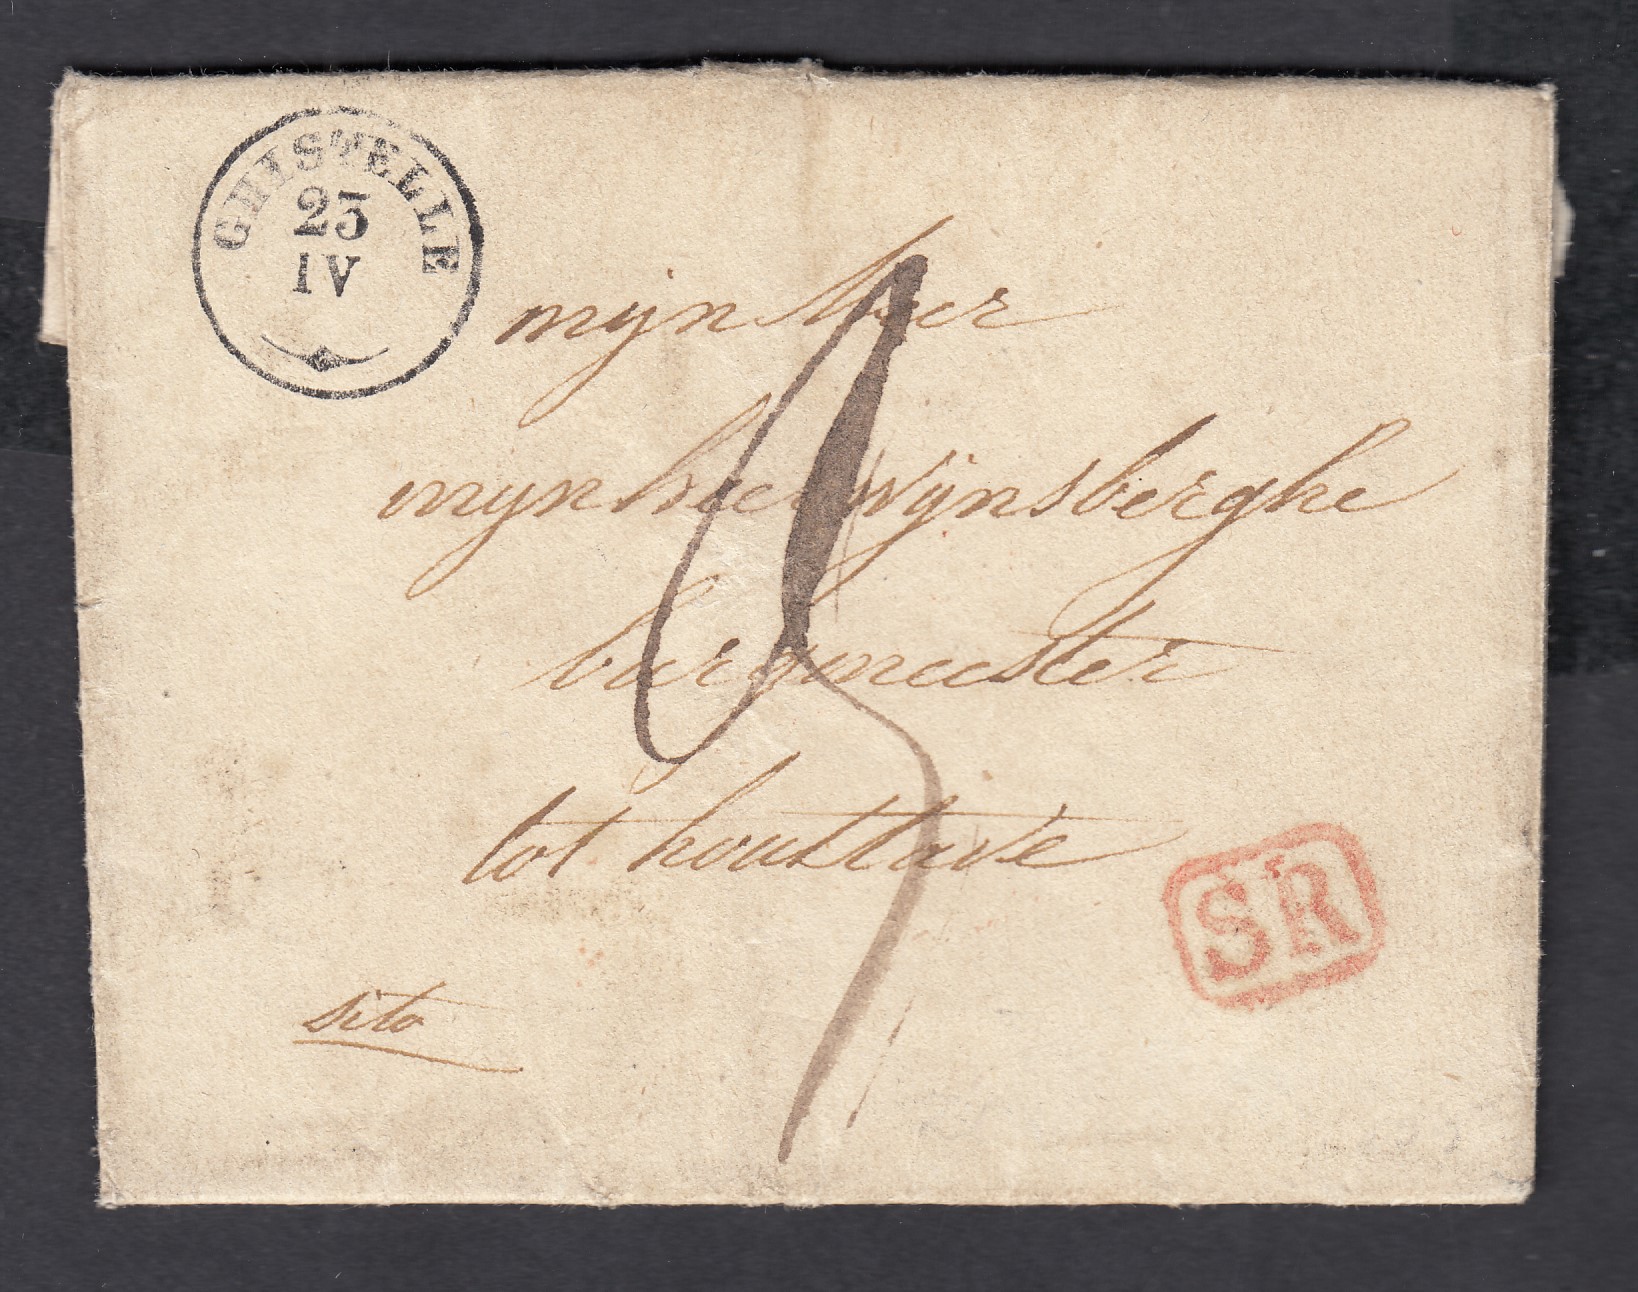 GHISTELLE
23
IV
mijn heer
mijn heer wijnsberghe
burgmeester
tot houttave
sito
SR